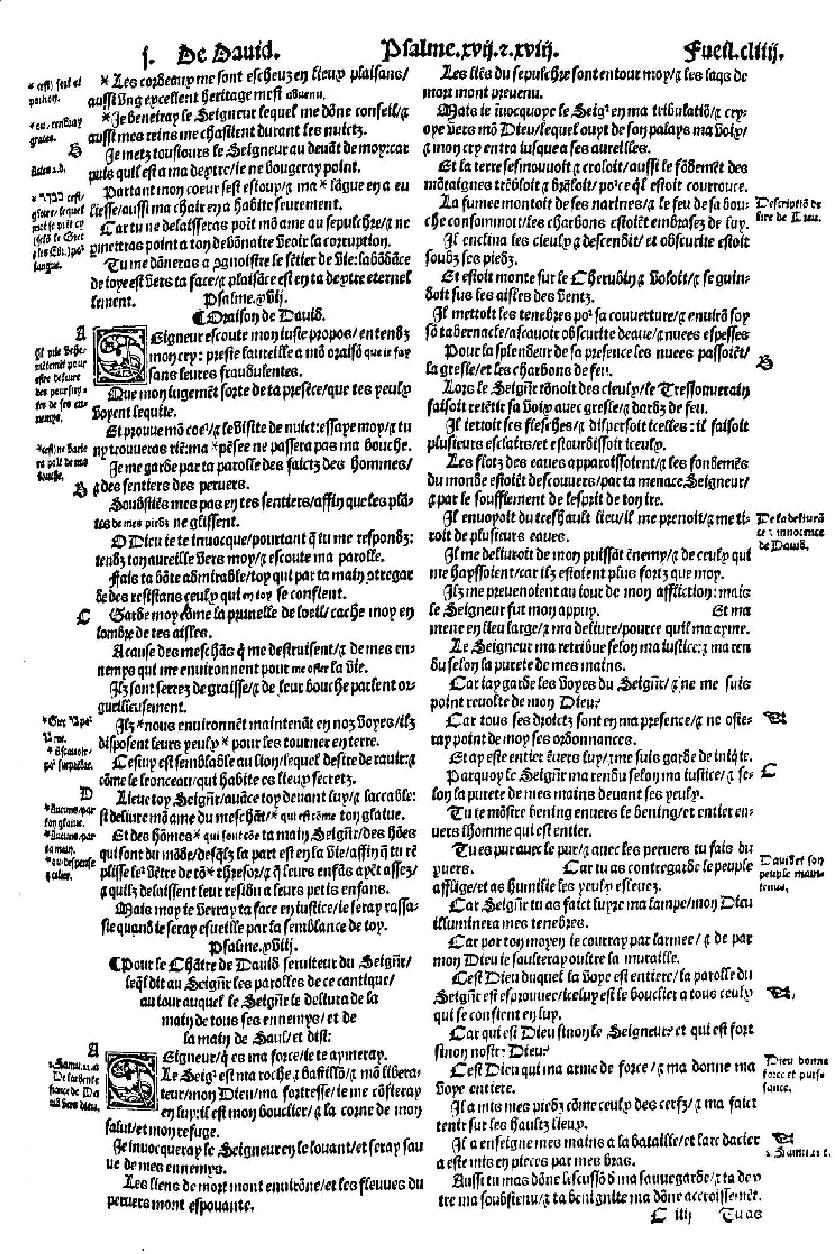 s. De Dauid.
Psalme.xvij.⁊.xviij.
Fueil.cliiij.
*Les cordeaux me sont escheuz en lieux plaisans/
aussi vng excellent heritage mest aduenu.
*Je beneiray le Seigneur lequel me dōne conseil/⁊
aussi mes reins me chastient durant les nuictz.
Je metz tousiours le Seigneur au deuāt de moy:car
puis quil est a ma dextre/ie ne bougeray point.
Partant mon coeur sest esiouy/⁊ ma *lāgue en a eu
liesse/aussi ma chair en a habite seurement.
Car tu ne delaisseras poīt mō ame au sepulchre/⁊ ne
pmettras point a ton debōnaire veoir la corruption.
Tu me dōneras a ꝯgnoistre le sētier de vie:labōdāce
de ioye est vers ta face/⁊ plaisāce est en ta dextre eternel
lement.
Psalme.xvij.
¶Oraison de Dauid.
A
Seigneur escoute mon iuste propos/entendz
mon cry: preste laureille a mō oraisō que ie fay
sans leures fraudulentes.
Que mon iugemēt sorte de ta presēce/que tes yeulx
voyent lequite.
Et prouue mō coe²/⁊ le visite de nuict:essaye moy/⁊ tu
ny trouueras riē:ma *pēsee ne passera pas ma bouche.
Je me garde par ta parolle des faictz des hommes/
B
⁊ des sentiers des peruers.
Soubstiēs mes pas en tes sentiers/affin que les plā-
tes de mes piedz ne glissent.
O Dieu ie te inuocque/pourtant q̄ tu me respondz:
tendz ton aureille vers moy/⁊ escoute ma parolle.
Fais ta bōte admirable/toy qui par ta main ꝯtregar
de des resistans ceulx qui en toy se confient.
C
Garde moy cōme la prunelle de loeil/cache moy en
lombre de tes aisles.
A cause des meschās q̄ me destruisent/⁊ de mes en-
nemys qui me enuironnent pour me oster la vie.
Jlz sont serrez de graisse/⁊ de leur bouche parlent or-
gueilleusement.
Jlz *nous enuironnēt maintenāt en noz voyes/ilz
disposent leurs yeulx * pour les tourner en terre.
Cestuy est semblable au lion/lequel desire de rauir:⁊
cōme le leonceau/qui habite es lieux secretz.
D
Lieue toy Seignr̄/auāce toy deuant luy/⁊ laccable:
deliure mō ame du meschāt/* qui est cōme ton glaiue.
Et des hōmes* qui sont cōe ta main Seignr̄/des hōes
qui sont du mōde/desq̄lz la part est en la vie/affin q̄ tu rē
plisse le vētre de tō* thresor/⁊ q̄ leurs enfās ayēt assez/
⁊ quilz delaissent leur residu a leurs petis enfans.
Mais moy ie verray ta face en iustice/ie seray rassa-
sie quand ie seray esueille par la semblance de toy.
Psalme.xviij.
¶Pour le Chātre de Dauid seruiteur du Seignr̄/
leq̄l dit au Seignr̄ les parolles de ce cantique/
au iour auquel le Seignr̄ le deliura de la
main de tous ses ennemys/et de
la main de Saul/et dist:
A
Seigneur/q̄ es ma force/ie te aymeray.
Le Seig² est ma roche/⁊ bastillō/⁊ mō libera-
teur/mon Dieu/ma fortresse/ie me cōfieray
en luy:il est mon bouclier/⁊ la corne de mon
salut/et mon refuge.
Je inuocqueray le Seigneur en le louant/et seray sau
ue de mes ennemys.
Les liens de mort mont enuirōne/et les fleuues du
peruers mont espouante.
Les liēs du sepulchre sont entour moy/⁊ les laqs de
mort mont preuenu.
Mais ie īuocquoye le Seig² en ma tribulatiō/⁊ cry-
oye vers mō Dieu/lequel ouyt de son palays ma voix/
⁊ mon cry entra iusque a ses aureilles.
Et la terre sesmouuoit ⁊ croloit/aussi le fōdemēt des
mōtaignes trēbloit/⁊ brāloit/po²ce q̄l estoit courrouce.
La fumee montoit de ses narines/⁊ le feu de sa bou-
che consommoit/les charbons estoiēt embrasez de luy.
Jl enclina les cieulx ⁊ descendit/et obscurite estoit
soubz ses piedz.
Et estoit monte sur le Cherubin/⁊ voloit/⁊ se guin-
doit sus les aisles des ventz.
Jl mettoit les tenebres po² sa couuerture/⁊ enuirō soy
sō tabernacle/ascauoir obscurite deaue/⁊ nuees espesses
Pour la splendeur de sa presence les nuees passoiēt/
la gresle/et les charbons de feu.
B
Lors le Seignr̄ tōnoit des cieulx/le Tressouuerain
faisoit retētir sa voix auec gresle/⁊ dardz de feu.
Jl iettoit ses flesches/⁊ dispersoit icelles: il faisoit
plusieurs esclairs/et estourdissoit iceulx.
Les flotz des eaues apparoissoient/⁊ les fondemēs
du monde estoiēt descouuers/par ta menace Seigneur/
⁊ par le soufflement de lesprit de ton ire.
Jl enuoyoit du treshault lieu/il me prenoit/⁊ me ti-
roit de plusieurs eaues.
Jl me deliuroit de mon puissāt ēnemy/⁊ de ceulx qui
me hayssoient/car ilz estoient plus fortz que moy.
Jlz me preuenoient au iour de mon affliction:mais
le Seigneur fut mon appuy. Et ma
mene en lieu large/⁊ ma deliure/pource quil ma ayme.
Le Seigneur ma retribue selon ma iustice:⁊ ma ren
du selon la purete de mes mains.
Car iay garde les voyes du Seignr̄/⁊ ne me suis
point reuolte de mon Dieu.
Car tous ses droictz sont en ma presence/⁊ ne oste-
ray point de moy ses ordonnances.
Et ay este entier ēuers luy/⁊ me suis garde de iniq̄te.
Parquoy le Seignr̄ ma rendu selon ma iustice/⁊ se-
C
lon la purete de mes mains deuant ses yeulx.
Tu te mōstre bening enuers le bening/et entier en-
uers lhomme qui est entier.
Tu es pur auec le pur/⁊ auec les peruers tu fais du
peruers. Car tu as contregarde le peuple
afflige/et as humilie les yeulx esleuez.
Car Seignr̄ tu as faict luyre ma lampe/mon Dieu
illuminera mes tenebres.
Car par ton moyen ie courray par larmee/⁊ de par
mon Dieu ie saulteray oultre la muraille.
Cest Dieu duquel la voye est entiere/la parolle du
Seignr̄ est esprouuee/iceluy est le bouclier a tous ceulx
qui se confient en luy.
Car qui est Dieu sinon le Seigneur? et qui est fort
sinon nostre Dieu?
Cest Dieu qui ma arme de force/⁊ ma donne ma
voye entiere.
Jl a mis mes piedz cōme ceulx des cerfz/⁊ ma faict
tenir sur les haultz lieux.
Jl a enseigne mes mains a la bataille/et larc dacier
a este mis en pieces par mes bras.
Aussi tu mas dōne lescussō d ma sauuegarde/⁊ ta dex
tre ma soubstenu/⁊ ta benignite ma dōne accroissemēt.
C iiij Tu as
Descriptiō de
lire de Dieu.
De la deliurā
ce ⁊ innocence
de Dauid.
Dauid et son
peuple main-
tenus.
Dieu donne
force et puis-
sance.